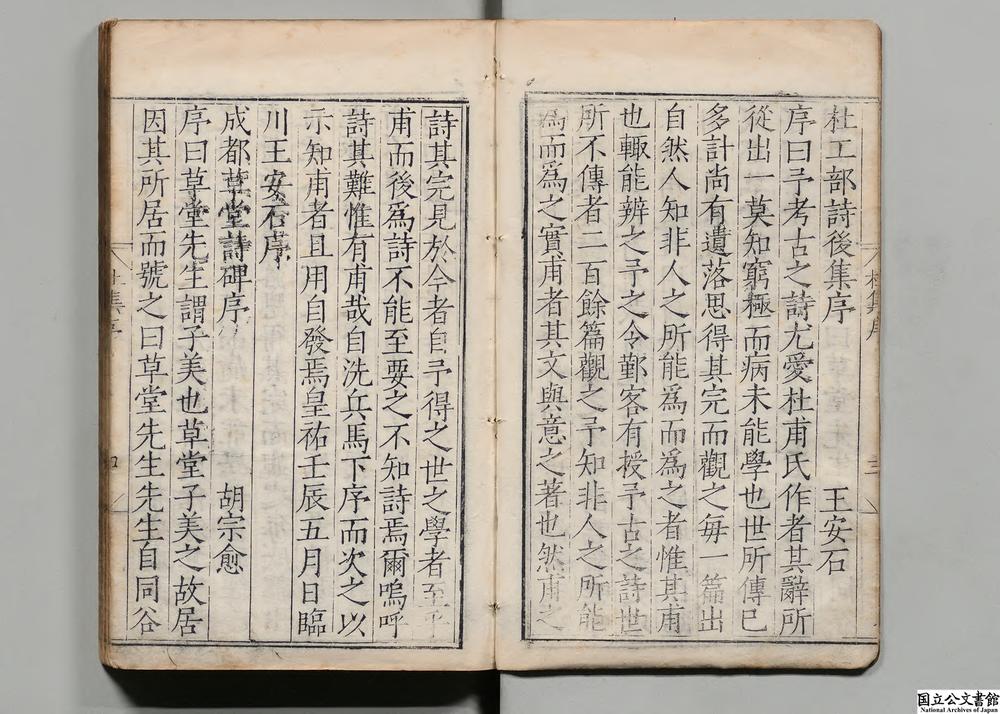 杜工部詩後集序 王安石
序曰予考古之詩尤愛杜甫氏作者其辭所
從出一莫知窮極而病未能學也世所傳已
多計尚有遺落思得其完而觀之每一篇出
自然人知非人之所能爲而爲之者惟其甫
也輙能辨之予之令鄞客有授予古之詩世
所不傳者二百餘篇觀之予知非人之所能
爲而爲之實甫者其文與意之著也然甫之
詩其完見於今者自予得之世之學者至乎
甫而後爲詩不能至要之不知詩焉爾嗚呼
詩其難惟有甫哉自洗兵馬下序而次之以
示知甫者且用自發焉皇祐壬辰五月日臨
川王安石序
成都草堂詩碑序 胡宗愈
序曰草堂先生謂子美也草堂子美之故居
因其所居而號之曰草堂先生先生自同谷
杜集序 三
杜集序 四
国立公文書館
National Archives of Japan